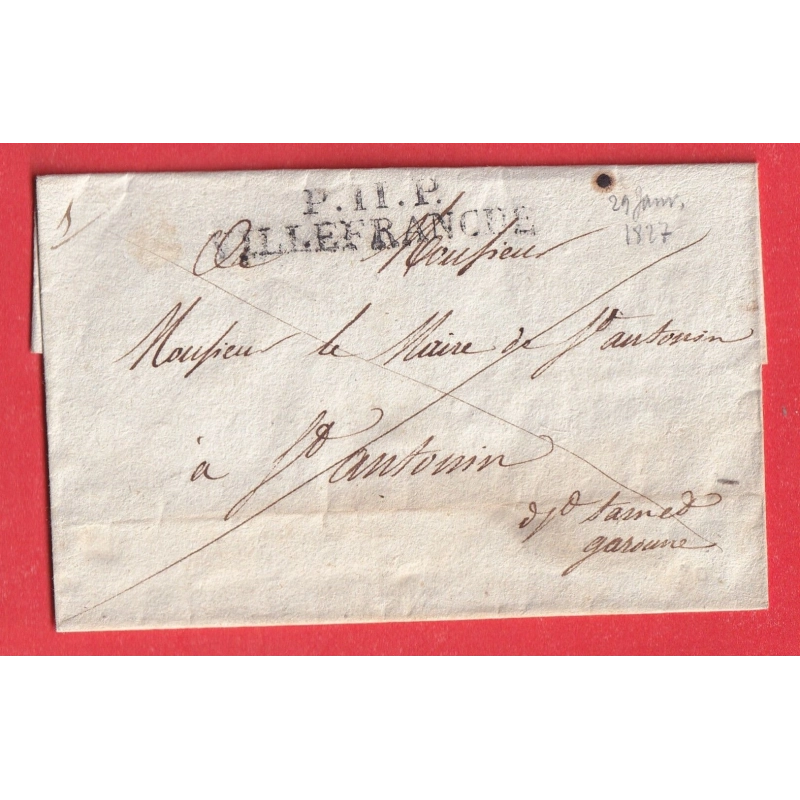 P.11.P.
VILLEFRANCDE
29 Janv.
1827
A Monsieur
Monsieur le Maire de St antonin
à St antonin
dpt tarn et
garonne